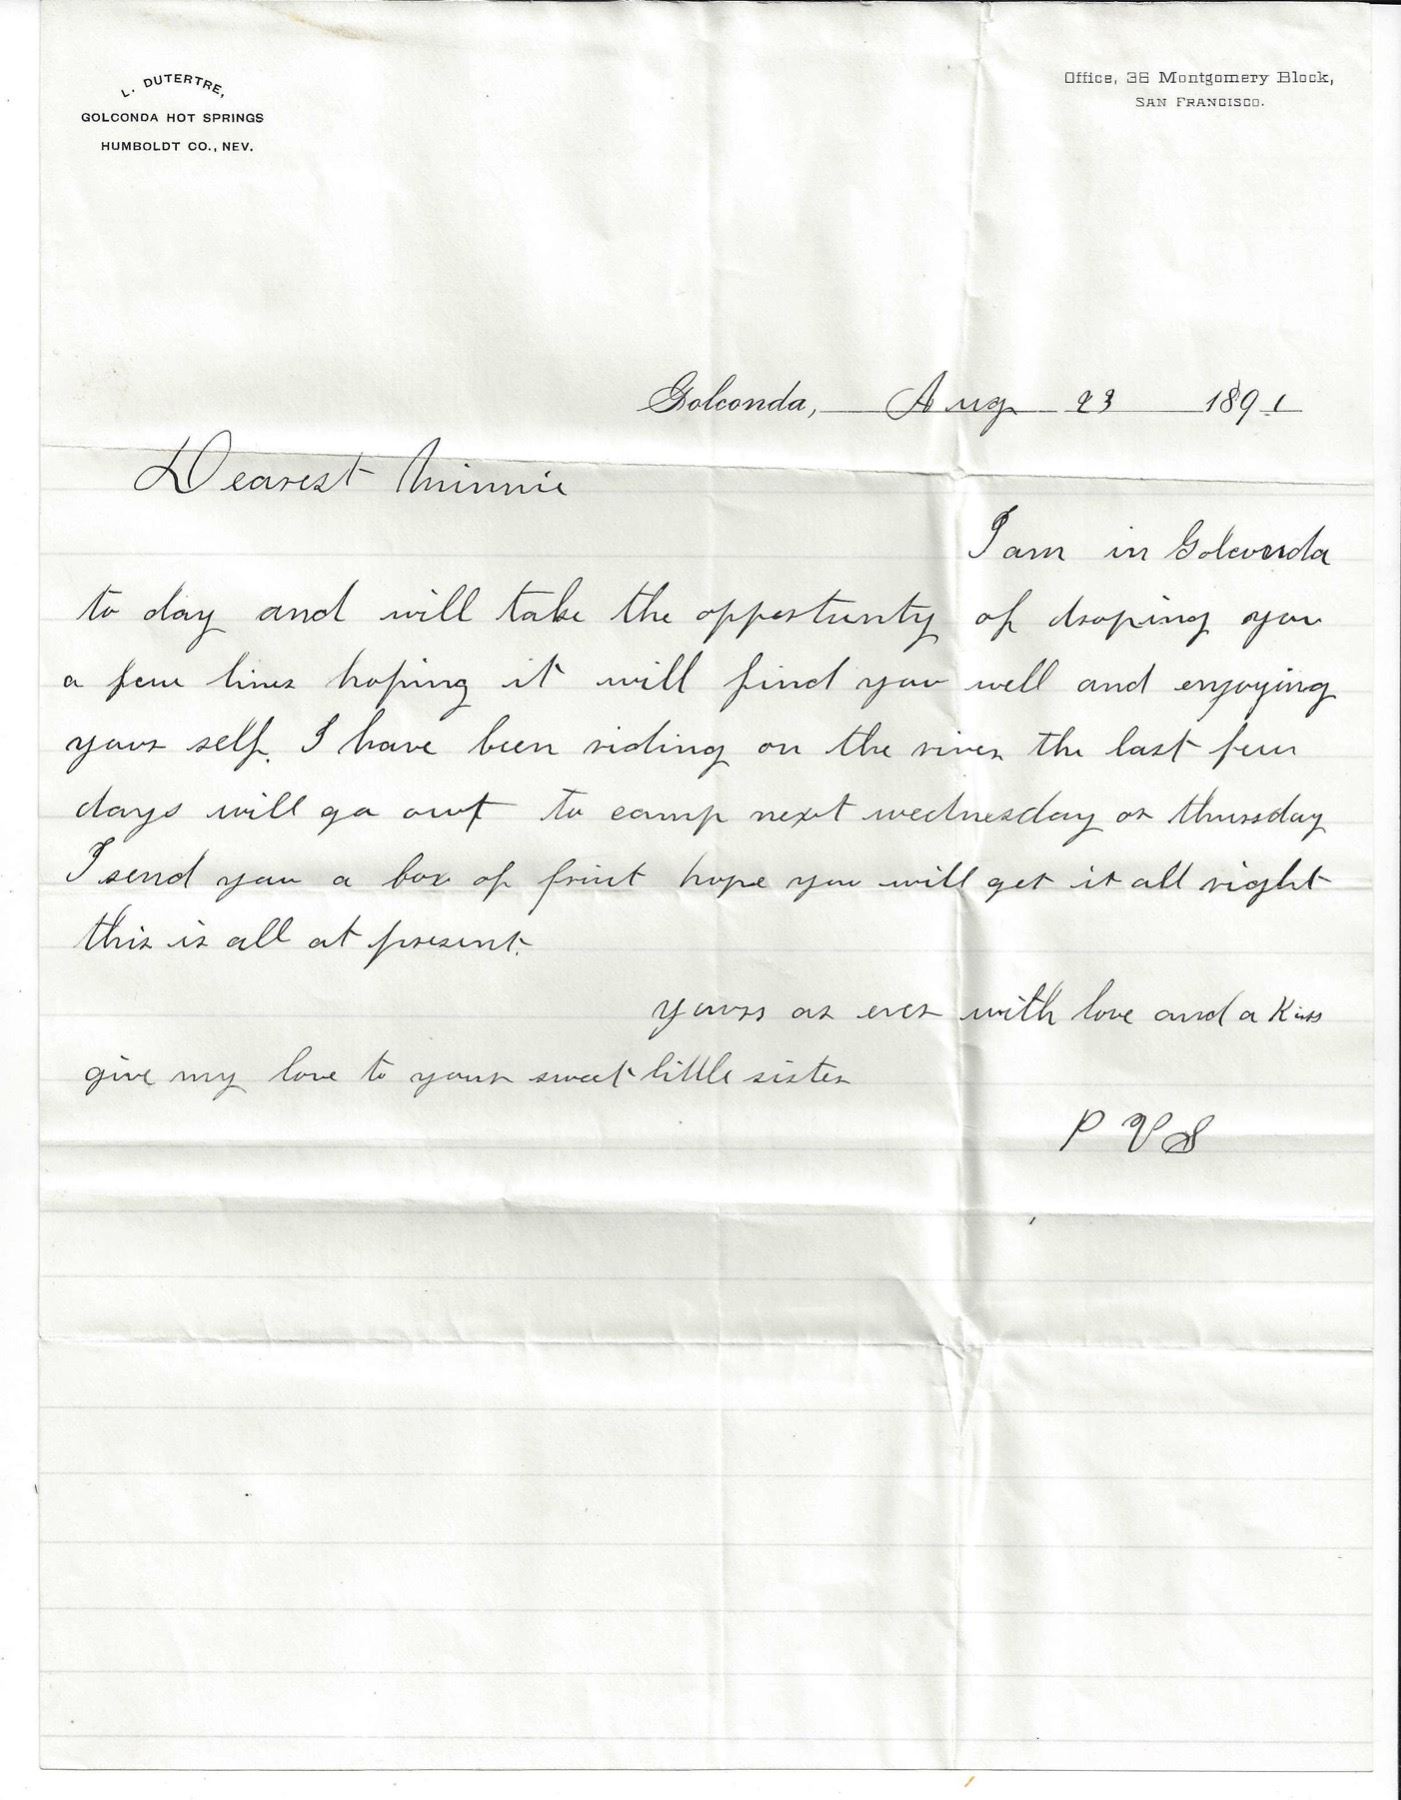 L. DUTERTRE,
GOLCONDA HOT SPRINGS
HUMBOLDT CO., NEV.
Office, 36 Montgomery Block,
SAN FRANCISCO.
Golconda, Aug 23 1891
Dearest Minnie
I am in Golconda
to day and will take the oppertunity of droping you
a few lines hoping it will find you well and enjoying
your self. I have been riding on the river the last few
days will go out to camp next wednesday or thursday
I send you a box of fruit hope you will get it all right
this is all at present.
yours as ever with love and a Kiss
give my love to your sweet little sister
P V S